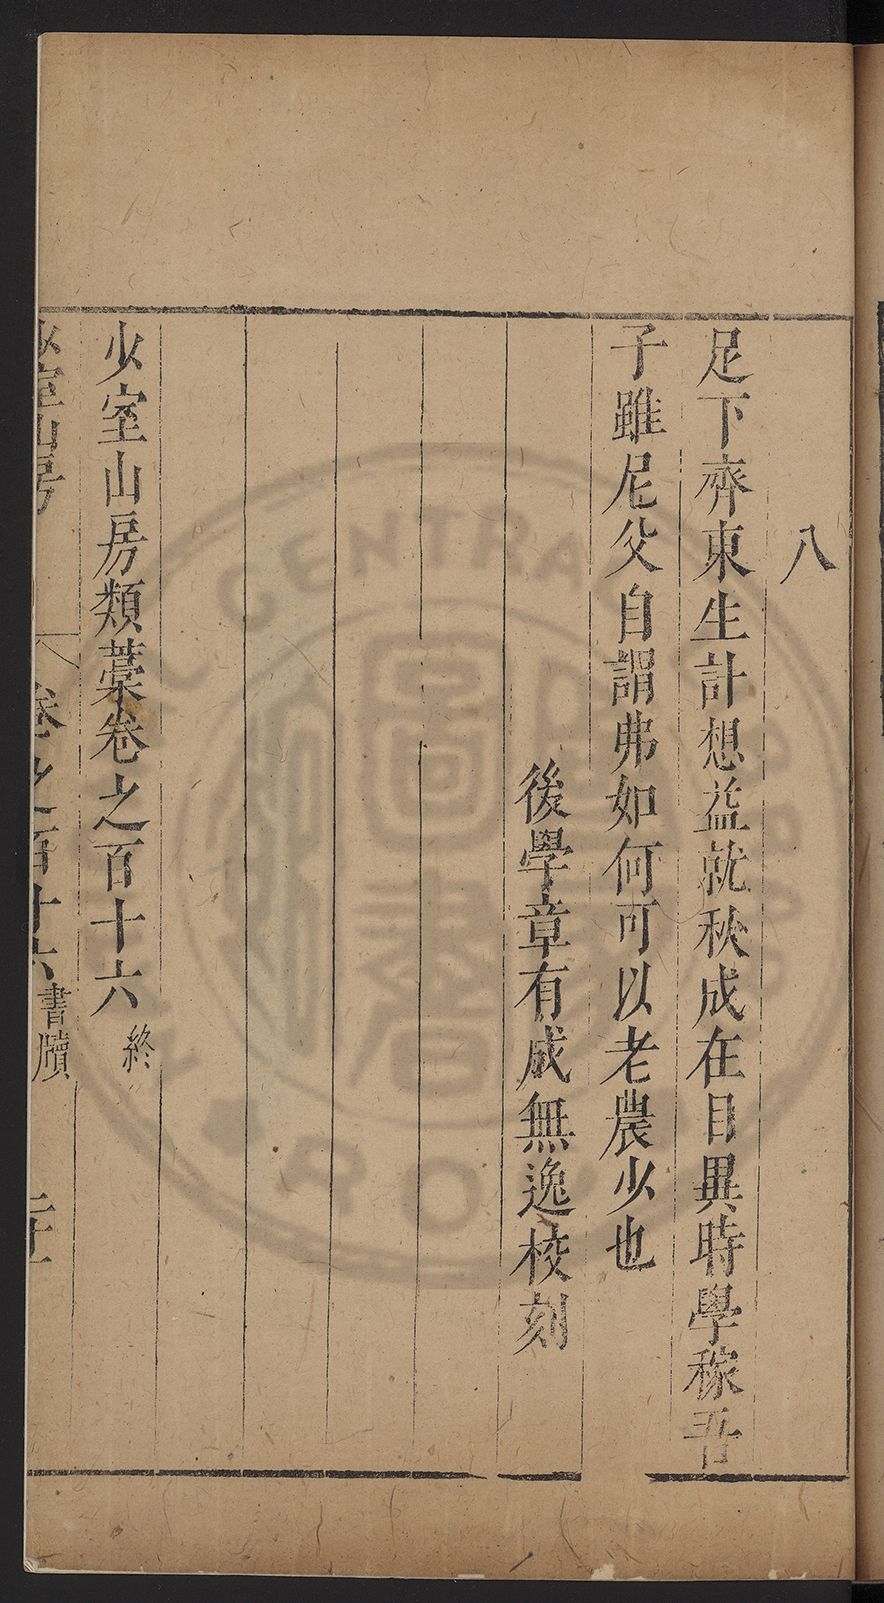 八
足下齊東生計想益就秋成在目異時學稼吾
子雖尼父自謂弗如何可以老農少也
後學章有成無逸校刻
少室山房類藁卷之百十六 終
少室山房 卷之百十六 書牘